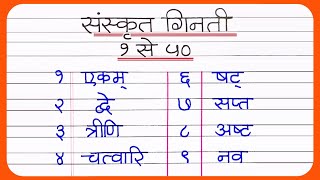 संस्कृत गिनती
१ से ५०
१ एकम् ६ षट्
२ द्वे ७ सप्त
३ त्रीणि ८ अष्ट
४ चत्वारि ९ नव